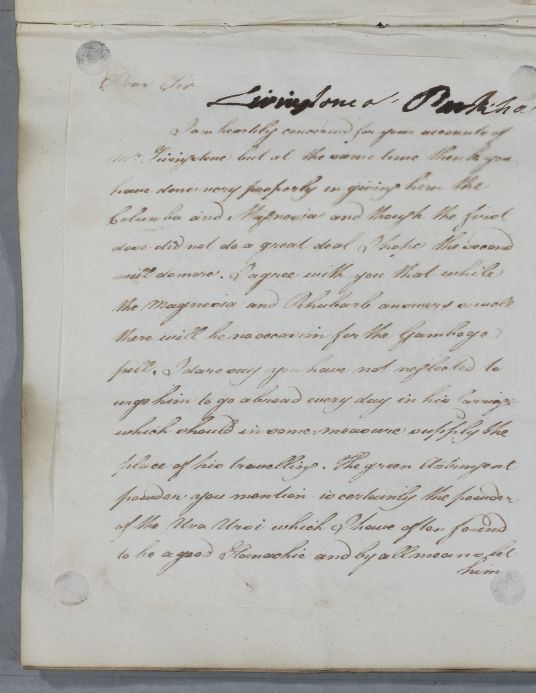 Dear Sir
Livingstone
I am heartily concerned for your accounts of
Mr. Livingstone but at the same time think you
have done very properly in giving him the
Columba and Magnesia and though the first
dose did not do a great deal I hope the second
will do more. I agree with you that while
the Magnesia and Rhubarb answers so well
there will be no occasion for the Gamboge
pill. I dare say you have not neglected to
urge him to go abroad every day in his carriage
which should in some measure supply the
place of his travelling. The green Astringent
powder you mention is certainly the powder
of the Uva Ursi which I have often found
to be a good Stomachic and by all means let
him